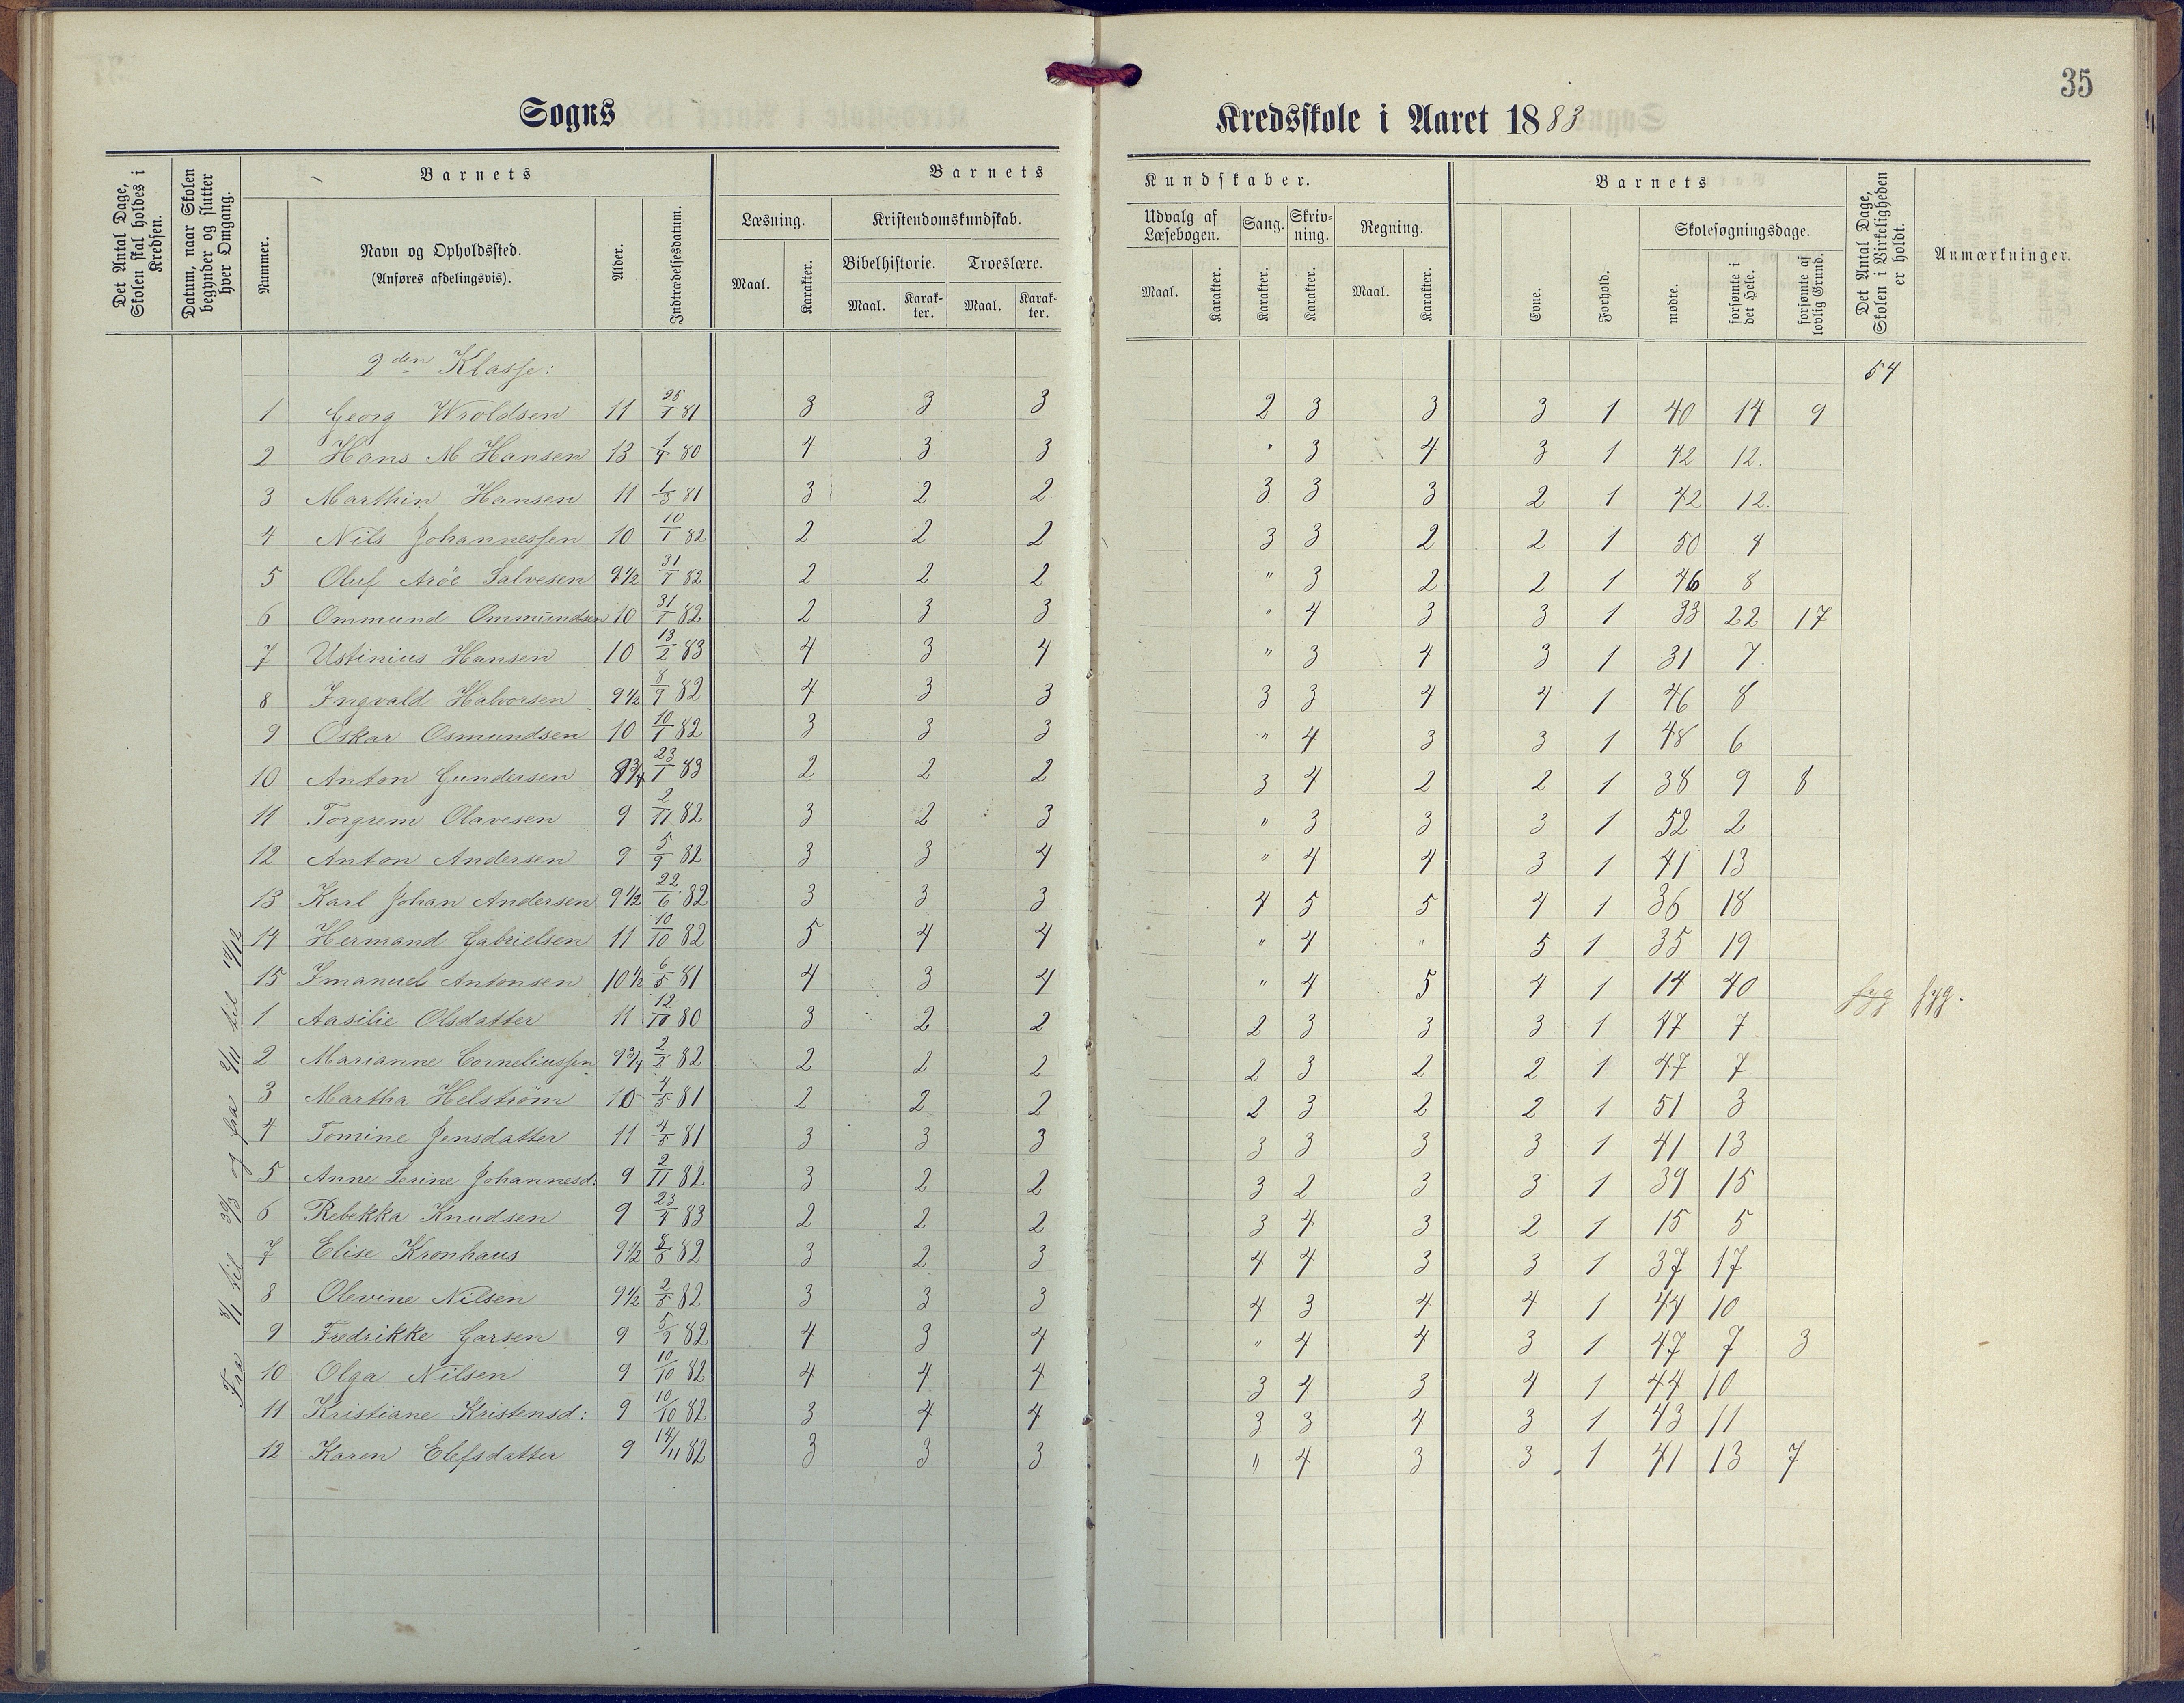 35
Sogns Kredsskole i Aaret 1883
Det Antal Dage, Skolen skal holdes i Kredsen.
Datum, naar Skolen begynder og slutter hver Omgang.
Barnets
Nummer.
Navn og Opholdssted.
(Anføres afdelingsvis).
Alder.
Indtrædelsesdatum.
Barnets Kundskaber.
Læsning.
Maal. Karakter.
Kristendomskundskab.
Bibelhistorie. Troeslære.
Maal. Karak-ter. Maal. Karak-ter.
Udvalg af Læsebogen.
Maal. Karakter.
Sang. Karakter.
Skriv-ning. Karakter.
Regning.
Maal. Karakter.
Barnets
Evne. Forhold.
Skolesøgningsdage.
mødte. forsømte i det Hele. forsømte af lovlig Grund.
Det Antal Dage, Skolen i Virkeligheden er holdt.
Anmærkninger.
Fra 8/1 til 30/3 og fra 2/11 til 14/12
2den Klasse: 54
1 Georg Wroldsen 11 25/1 81 3 3 3 2 3 3 3 1 40 14 9
2 Hans M Hansen 13 1/4 80 4 3 3 " 3 4 3 1 42 12.
3 Marthin Hansen 11 1/3 81 3 2 2 3 3 3 2 1 42 12.
4 Nils Johannessen 10 10/1 82 2 2 2 3 3 2 2 1 50 4
5 Oluf Aröe Salvesen 9 1/2 31/1 82 2 2 2 " 3 2 2 1 46 8
6 Ommund Ommundsen 10 31/1 82 2 3 3 " 4 3 3 1 33 22 17
7 Ustinius Hansen 10 13/2 83 4 3 4 " 3 4 3 1 31 7.
8 Ingvald Halvorsen 9 1/2 8/9 82 4 3 3 3 3 4 4 1 46 8
9 Oskar Osmundsen 10 10/1 82 3 3 3 " 4 3 3 1 48 6
10 Anton Gundersen 8 3/4 23/1 83 2 2 2 3 4 2 2 1 38 9 8
11 Torgrem Olavesen 9 2/11 82 3 2 3 " 3 3 3 1 52 2
12 Anton Andersen 9 5/9 82 3 3 4 " 4 4 3 1 41 13
13 Karl Johan Andersen 9 1/2 22/6 82 3 3 3 4 5 5 4 1 36 18
14 Hermand Gabrielsen 11 10/10 82 5 4 4 " 4 " 5 1 35 19
15 Imanuel Antonsen 10 1/2 6/5 81 4 3 4 " 4 5 4 1 14 40 syg syg.
1 Aasilie Olsdatter 11 12/10 80 3 2 2 2 3 3 3 1 47 7
2 Marianne Corneliussen 9 3/4 2/2 82 2 2 2 2 3 2 2 1 47 7
3 Martha Helström 10 4/5 81 2 2 2 2 3 2 2 1 51 3
4 Tomine Jensdatter 11 4/5 81 3 3 3 3 3 3 3 1 41 13
5 Anne Serine Johannesd: 9 2/11 82 3 2 2 3 2 3 3 1 39 15
6 Rebekka Knudsen 9 23/4 83 2 2 2 3 4 3 2 1 15 5
7 Elise Kronhaus 9 1/2 8/5 82 3 2 3 4 4 3 3 1 37 17
8 Olevine Nilsen 9 1/2 2/5 82 3 3 3 4 3 4 4 1 44 10
9 Fredrikke Garsen 9 5/9 82 4 3 4 " 4 4 3 1 47 7 3
10 Olga Nilsen 9 10/10 82 4 4 4 3 4 3 4 1 44 10
11 Kristiane Kristensd: 9 10/10 82 3 4 4 3 3 4 3 1 43 11
12 Karen Elefsdatter 9 14/11 82 3 3 3 " 4 3 3 1 41 13 7